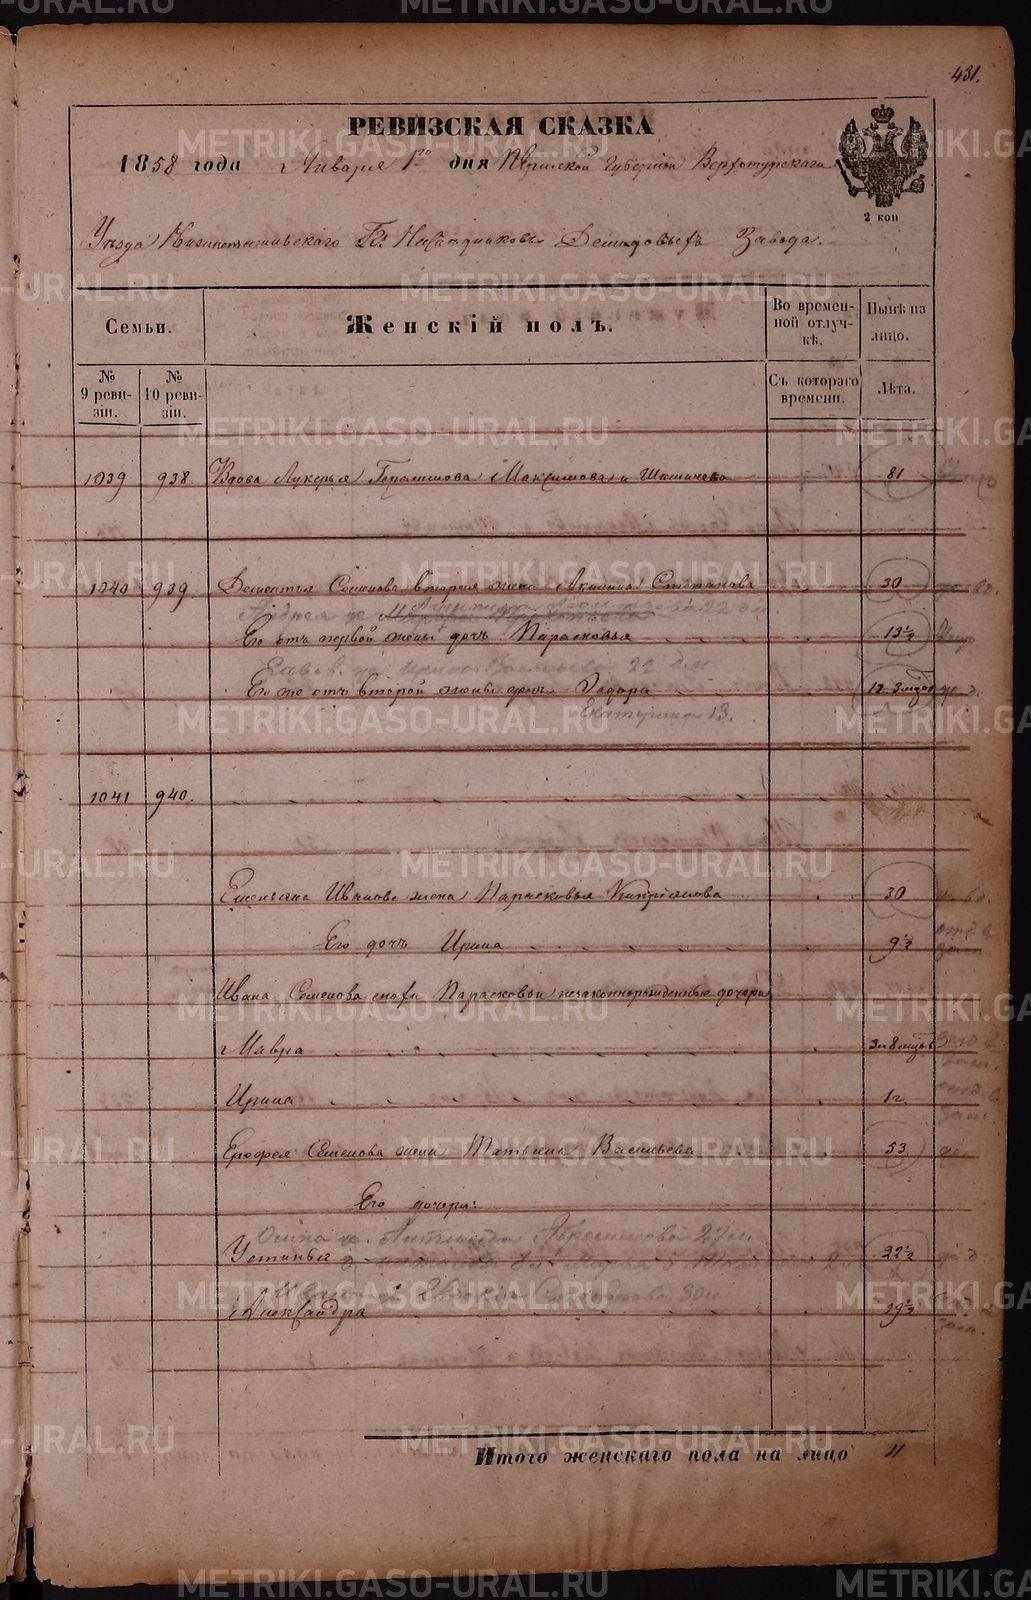 431.
РЕВИЗСКАЯ СКАЗКА
1858 года Января 1го дня Пермской Губернiи Верхотурскаго
2 коп
Уѣзда Нижнетагильскаго Гг. Наслѣдниковъ Демидовыхъ Завода.
Семьи.
Женскій полъ.
Во временной отлучкѣ.
Нынѣ на лицо.
№ 9 ревизіи.
№ 10 ревизіи.
Съ котораго времени.
Лѣта.
1039 938 Вдова Лукерья Герасимова Максимова и Шашинева 81
1040 939 Дементья Семенова вторая жена Акилина Степанова 30
Андрея ж. 22
Его отъ первой жены дочь Парасковья 13½
Савв. ж. Ирина Васильева 22
Его же отъ второй жены дочь Ѳедора 1г. 3 мѣсяц
Екатерина 13.
1041 940.
Емельяна Иванова жена Парасковья Кипріянова 30
Его дочь Ирина 9½
Ивана Семенова снохи Парасковьи незаконнорожденные дочери
Мавра 3г 8 мѣсяц
Ирина 1г.
Ерофея Семенова жена Татьяна Васильева 53.
Его дочери:
Осипа ж. Абрамова 27
Устинья 22½
Ивана ж. 30
Александра 19½
Итого женскаго пола на лицо 11
METRIKI.GASO-URAL.RU